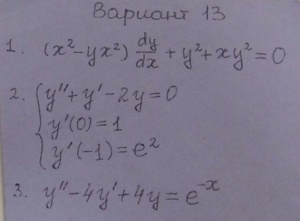 Вариант 13
1. (x²-yx²) dy/dx + y² + xy² = 0
2. { y'' + y' - 2y = 0
y'(0) = 1
y'(-1) = e²
3. y'' - 4y' + 4y = e⁻ˣ